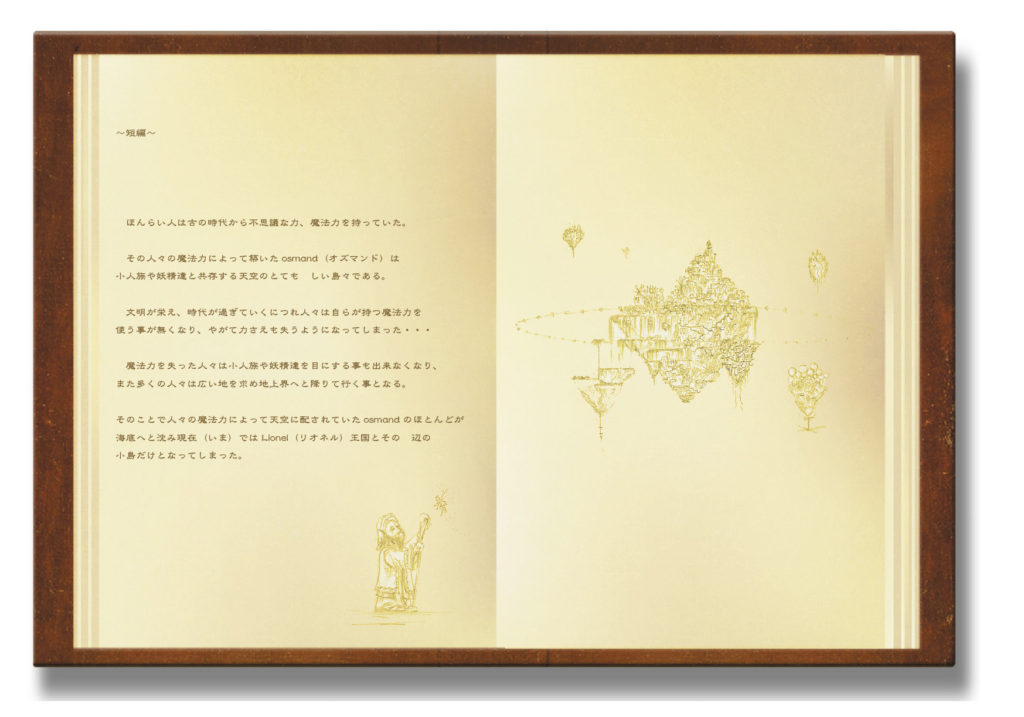 ～短編～
ほんらい人は古の時代から不思議な力、魔法力を持っていた。
その人々の魔法力によって築いた osmand（オズマンド）は
小人族や妖精達と共存する天空のとても　しい島々である。
文明が栄え、時代が過ぎていくにつれ人々は自らが持つ魔法力を
使う事が無くなり、やがて力さえも失うようになってしまった・・・
魔法力を失った人々は小人族や妖精達を目にする事も出来なくなり、
また多くの人々は広い地を求め地上界へと降りて行く事となる。
そのことで人々の魔法力によって天空に配されていた osmand のほとんどが
海底へと沈み現在（いま）では Lionel（リオネル）王国とその　辺の
小島だけとなってしまった。